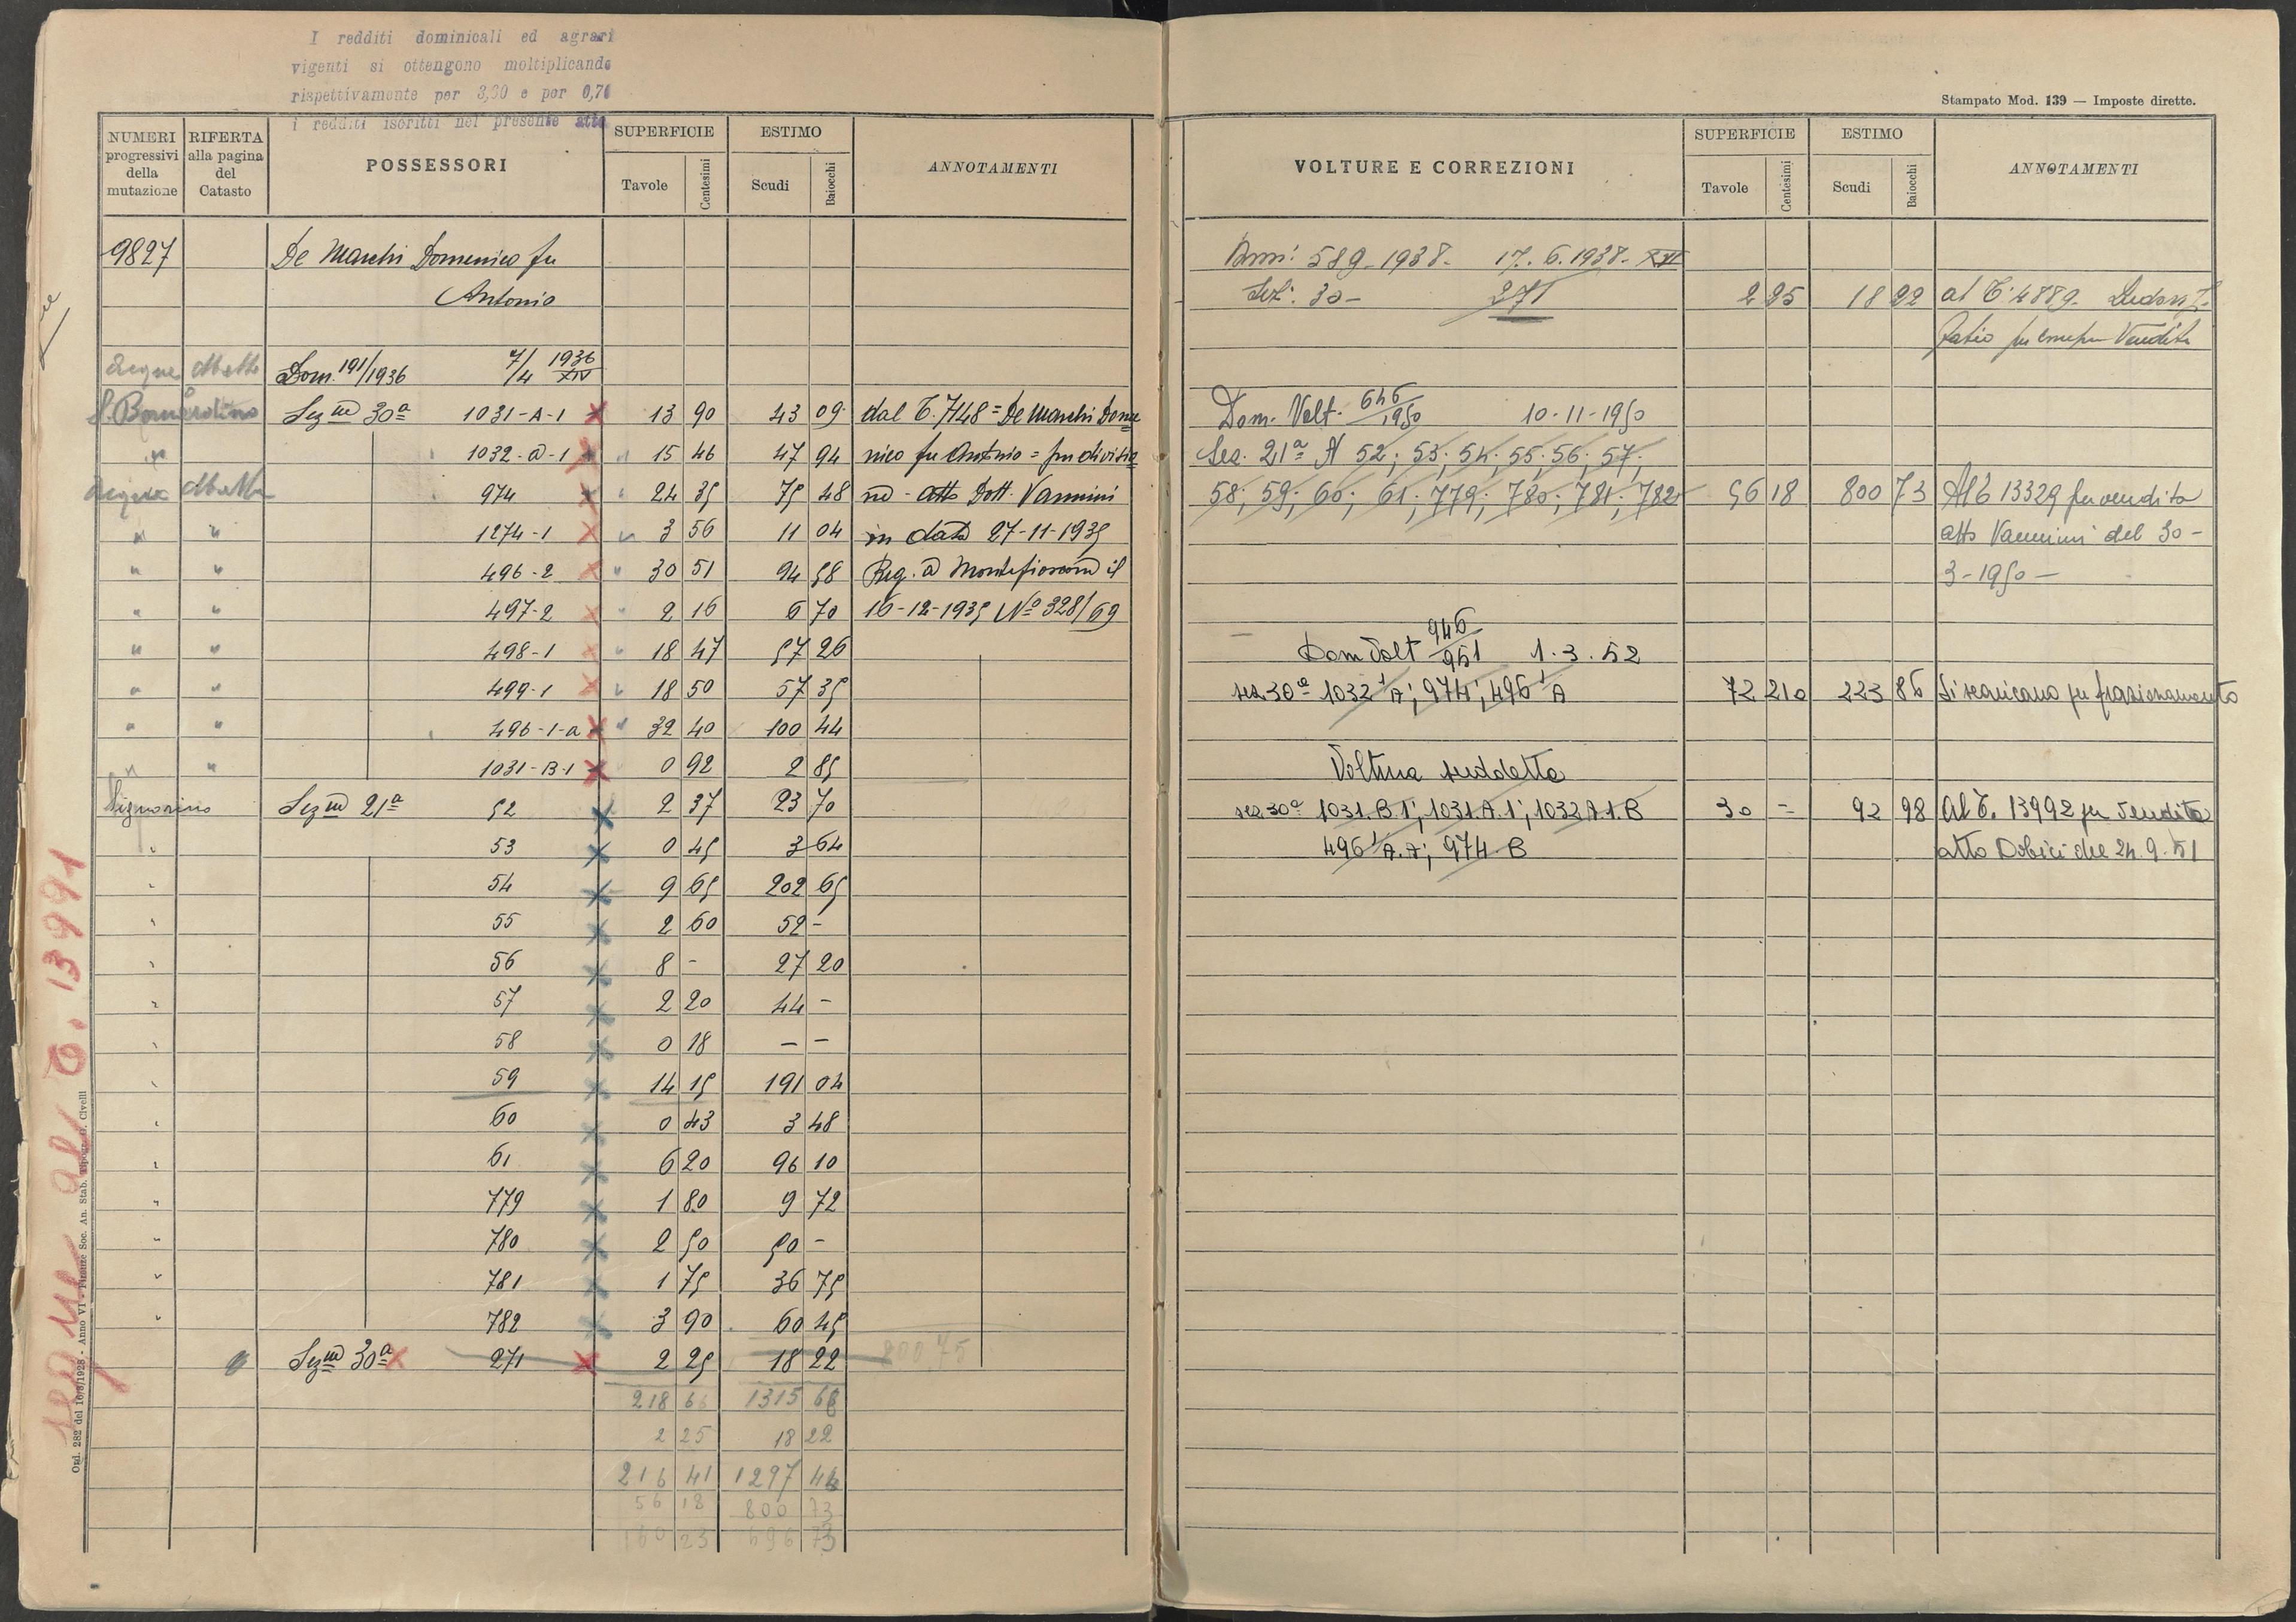 I redditi dominicali ed agrari
vigenti si ottengono moltiplicando
rispettivamente per 3,30 e per 0,70
i redditi iscritti nel presente atto
NUMERI progressivi della mutazione
RIFERTA alla pagina del Catasto
POSSESSORI
SUPERFICIE
Tavole Centesimi
ESTIMO
Scudi Baiocchi
ANNOTAMENTI
9827 De Marchi Domenico fu
Antonio
Dom. 191/1936 7/4 1936 XIV
S. Bernardino Sezne 30a 1031-A-1 13 90 43 09 dal T. 7148 = De Marchi Dome
" 1032-a-1 15 46 47 94 nico fu Antonio = per divisio
974 24 35 75 48 ne - atto Dott. Vannini
" " 1274-1 3 56 11 04 in data 27-11-1935
" " 496-2 30 51 94 58 Reg. a Montefiascone il
" " 497-2 2 16 6 70 16-12-1935 No 328/69
" " 498-1 18 47 57 26
" " 499-1 18 50 57 35
" " 496-1-a 32 40 100 44
" " 1031-B-1 0 92 2 85
Signorino Sezne 21a 52 2 37 23 70
" 53 0 45 3 64
" 54 9 65 202 65
" 55 2 60 52 -
" 56 8 - 27 20
" 57 2 20 44 -
" 58 0 18 - -
" 59 14 15 191 04
" 60 0 43 3 48
" 61 6 20 96 10
" 779 1 80 9 72
" 780 2 50 50 -
" 781 1 75 36 75
" 782 3 90 60 45
Sezne 30a 271 2 25 18 22 800 75
218 66 1315 66
2 25 18 22
216 41 1297 44
56 18 800 73
160 23 496 73
segue al T. 13991
Ord. 282 del 16/8/1928 - Anno VI - Firenze Soc. An. Stab. Tipogr. G. Civelli
Stampato Mod. 139 — Imposte dirette.
VOLTURE E CORREZIONI
SUPERFICIE
Tavole Centesimi
ESTIMO
Scudi Baiocchi
ANNOTAMENTI
589-1938- 17.6.1938- XVI
Sez. 30- 271 2 25 18 22 al T. 4889
Vendita
Dom. Volt. 646/1950 10-11-1950
Sez. 21a N 52; 53; 54; 55; 56; 57;
58; 59; 60; 61; 779; 780; 781; 782 56 18 800 73 Al T 13329 per vendita
atto Vannini del 30-
3-1950-
Dom Volt 946/951 1.3.52
sez. 30a 1032 1/A; 974; 496 1/A 72 210 223 86 Si scaricano per frazionamento
Voltura suddetta
sez. 30a 1031.B.1; 1031.A.1; 1032 A.1.B 30 = 92 98 Al T. 13992 per vendita
496 1/A.A; 974 B atto Dobici del 24.9.51